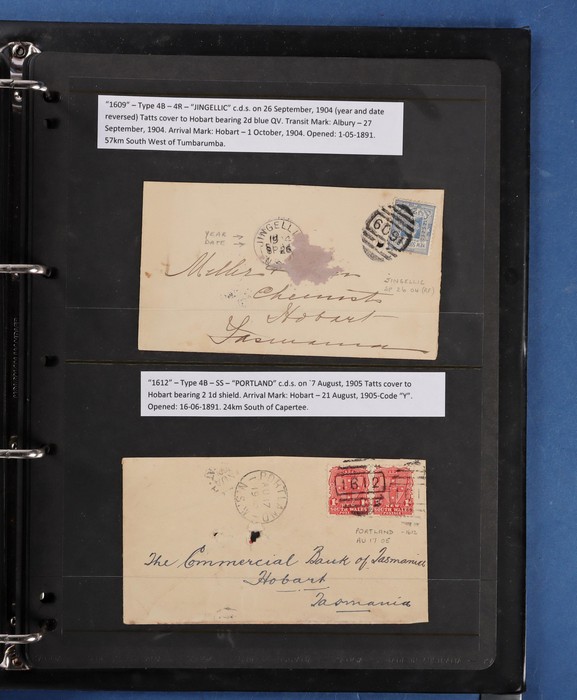 "1609" – Type 4B – 4R – "JINGELLIC" c.d.s. on 26 September, 1904 (year and date
reversed) Tatts cover to Hobart bearing 2d blue QV. Transit Mark: Albury – 27
September, 1904. Arrival Mark: Hobart – 1 October, 1904. Opened: 1-05-1891.
57km South West of Tumbarumba.
YEAR →
DATE →
JINGELLIC
SP 26
1609
JINGELLIC
Miller
Chemists
Hobart
Tasmania
"1612" – Type 4B – SS – "PORTLAND" c.d.s. on `7 August, 1905 Tatts cover to
Hobart bearing 2 1d shield. Arrival Mark: Hobart – 21 August, 1905-Code "Y".
Opened: 16-06-1891. 24km South of Capertee.
PORTLAND
AU 17
N.S.W
1612
SOUTH WALES
SOUTH WALES
PORTLAND -1612
AU 17 05
The Commercial Bank of Tasmania
Hobart
Tasmania